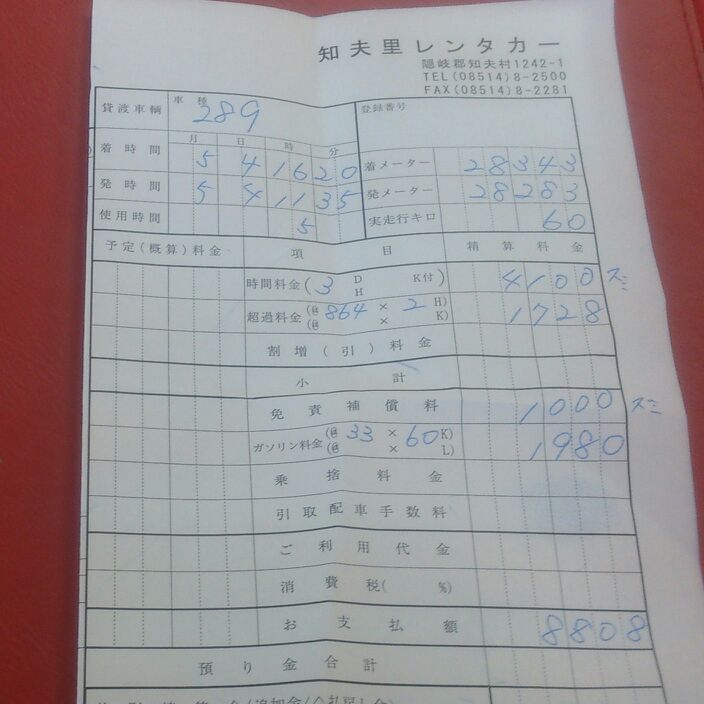 知夫里レンタカー
隠岐郡知夫村1242-1
TEL(08514)8-2500
FAX(08514)8-2281
貸渡車輌 車種 289 登録番号
月 日 時 分
着時間 5 4 16 20 着メーター 28343
発時間 5 4 11 35 発メーター 28283
使用時間 5 実走行キロ 60
予定(概算)料金 項目 精算料金
時間料金(3 D H K付) 4100 スミ
超過料金(@864×2H) 1728
(@ × K)
割増(引)料金
小計
免責補償料 1000 スミ
ガソリン料金(@33×60K) 1980
(@ × L)
乗捨料金
引取配車手数料
ご利用代金
消費税( %)
お支払額 8808
預り金合計